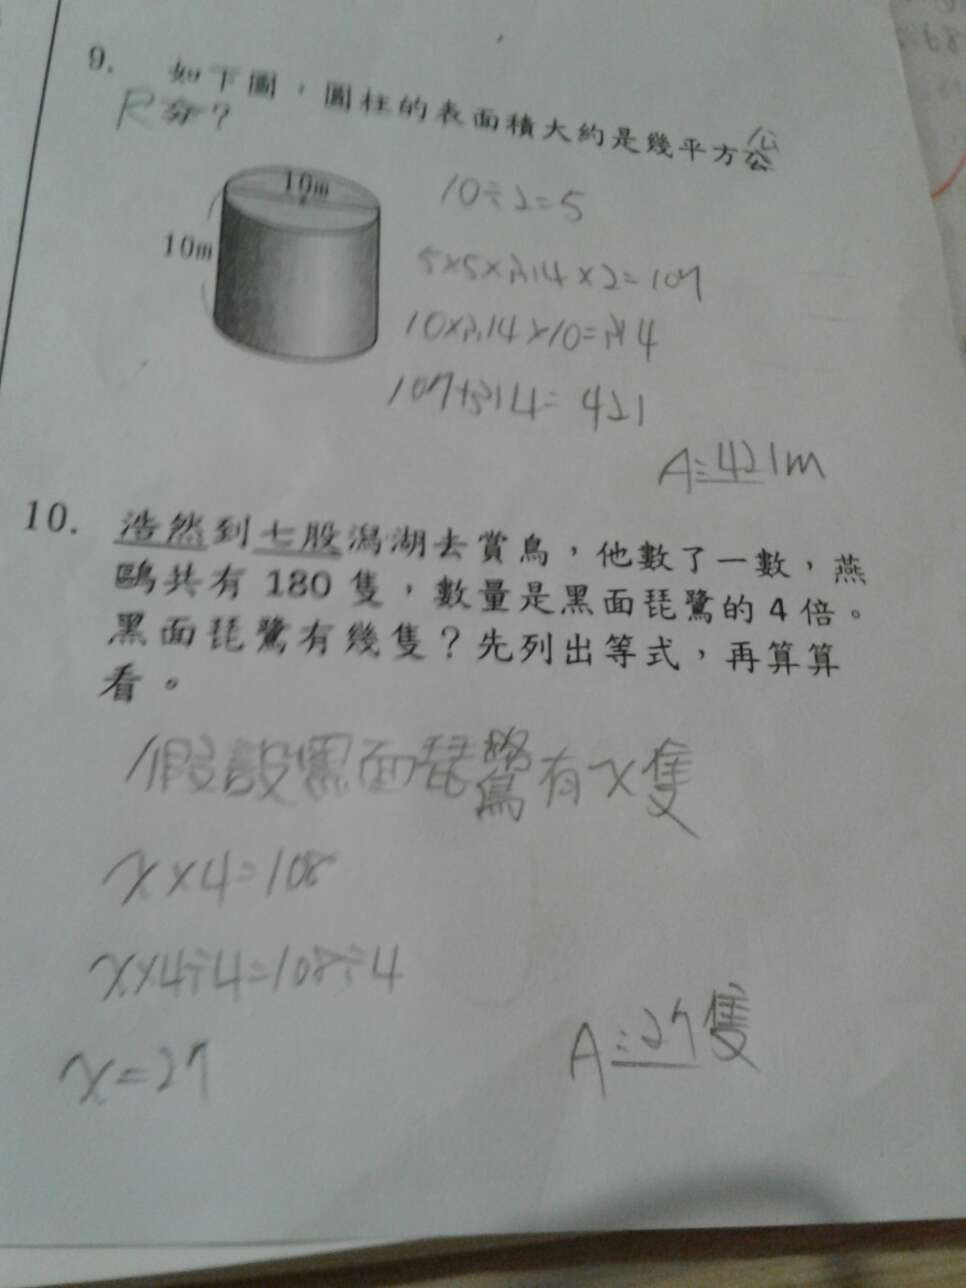 9. 如下圖，圓柱的表面積大約是幾平方公
尺
10m
10m
10÷2=5
5×5×3.14×2=107
10×3.14×10=314
107+314=421
A:421m
10. 浩然到七股潟湖去賞鳥，他數了一數，燕
鷗共有 180 隻，數量是黑面琵鷺的 4 倍。
黑面琵鷺有幾隻？先列出等式，再算算
看。
假設黑面琵鷺有x隻
x×4=108
x×4÷4=108÷4
x=27
A:27隻